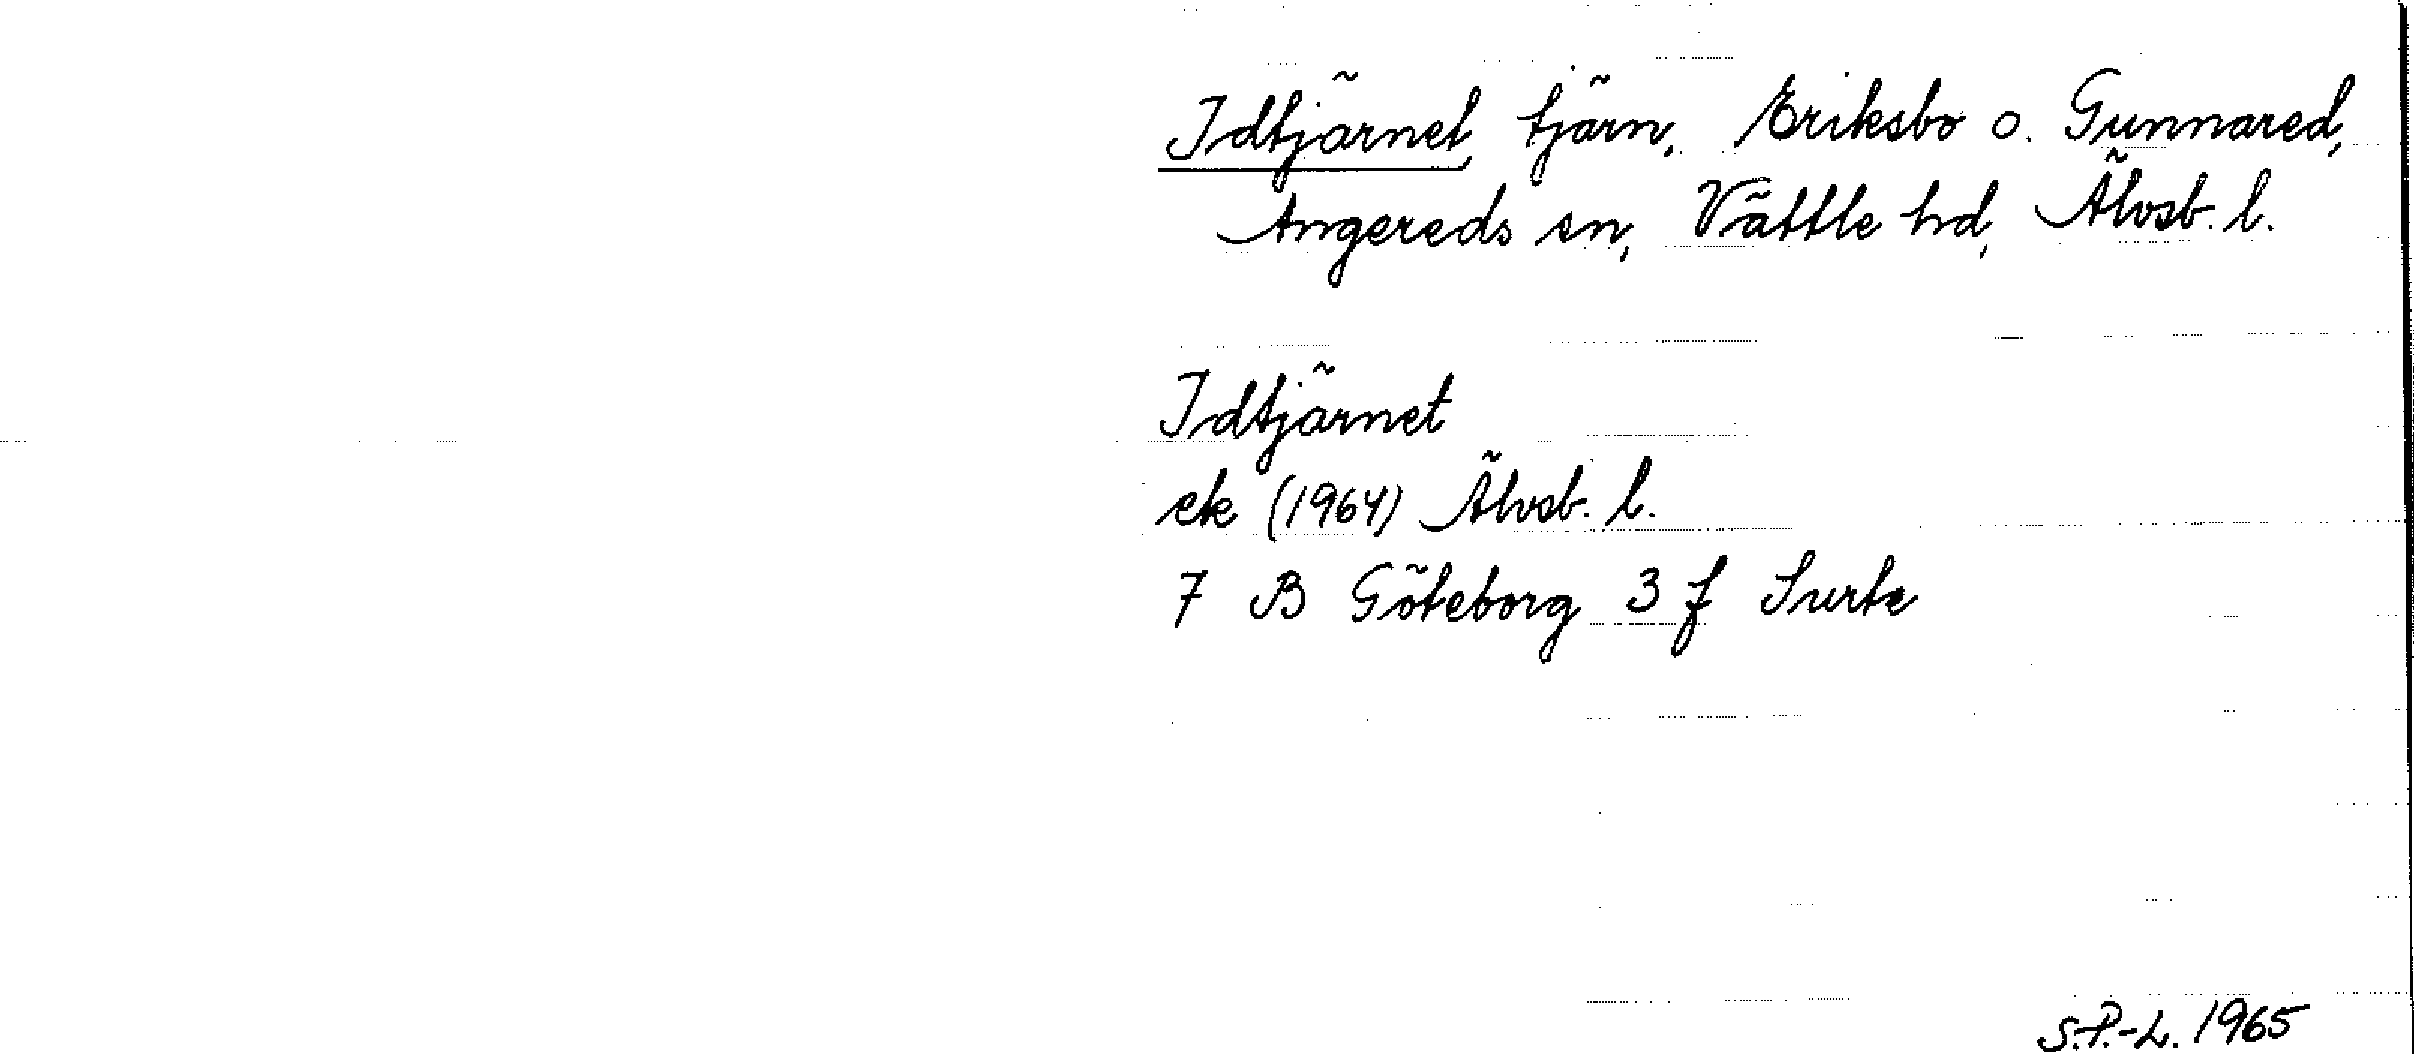 Idtjärnet, tjärn, Eriksbo o. Gunnared,
Angereds sn, Vättle hd, Älvsb. l.
Idtjärnet
ek (1964) Älvsb. l.
7 B Göteborg 3 f Surte
S.P.-L. 1965